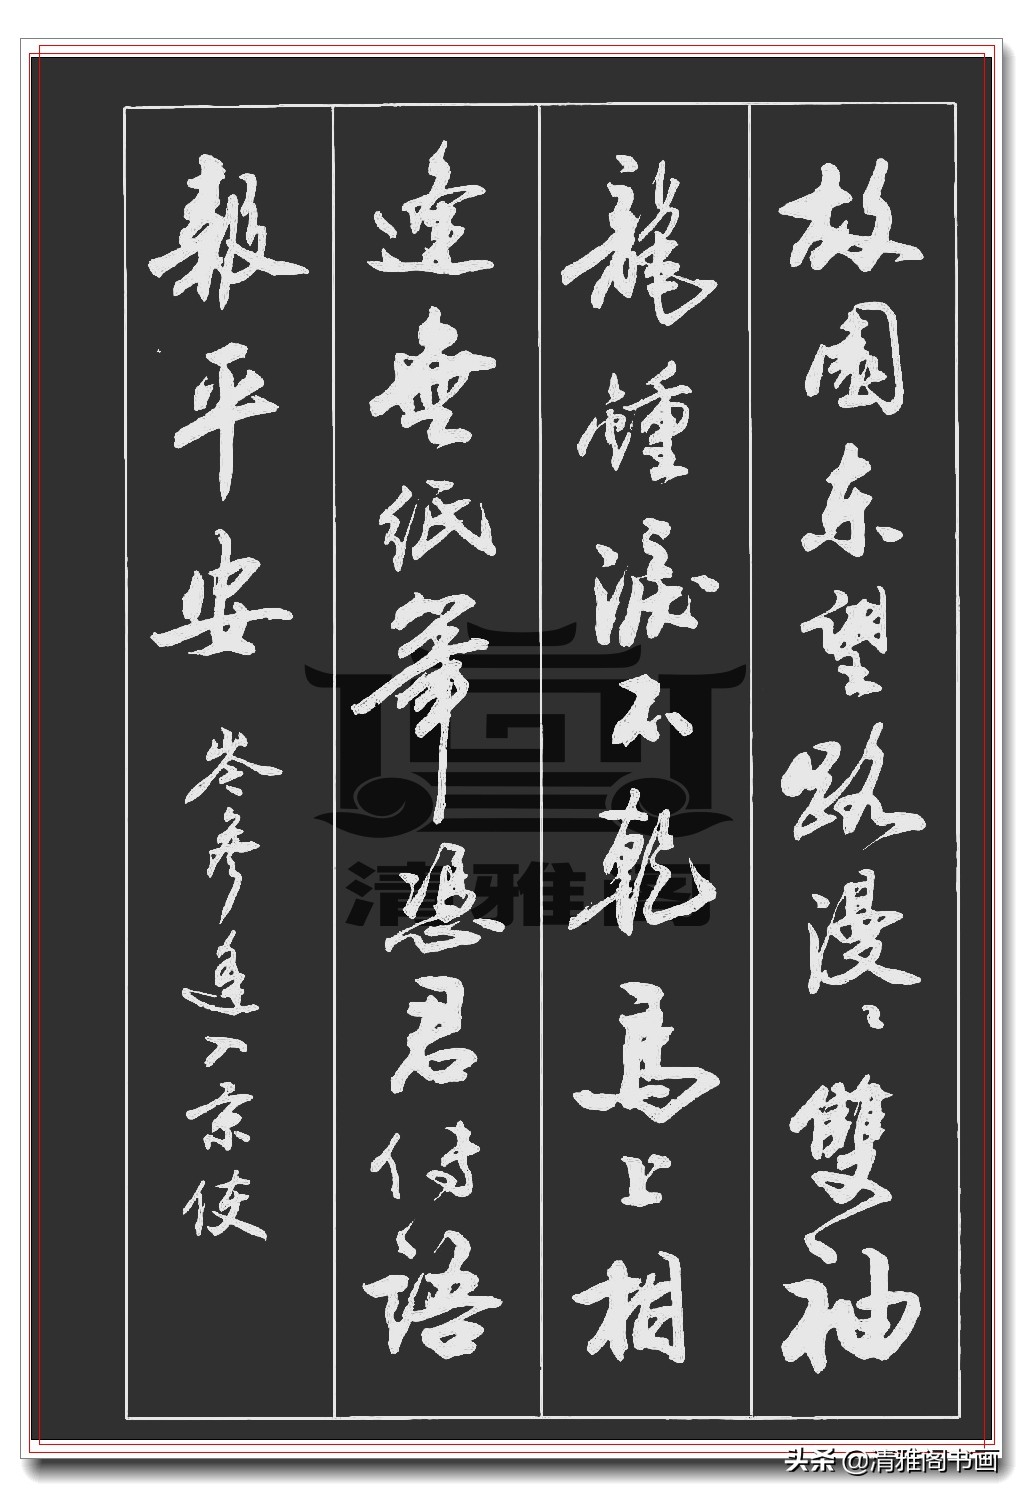 故園东望路漫〻雙袖
龍鍾淚不乾馬上相
逢無紙筆憑君传語
報平安 岑參逢入京使
清雅阁
头条 @清雅阁书画